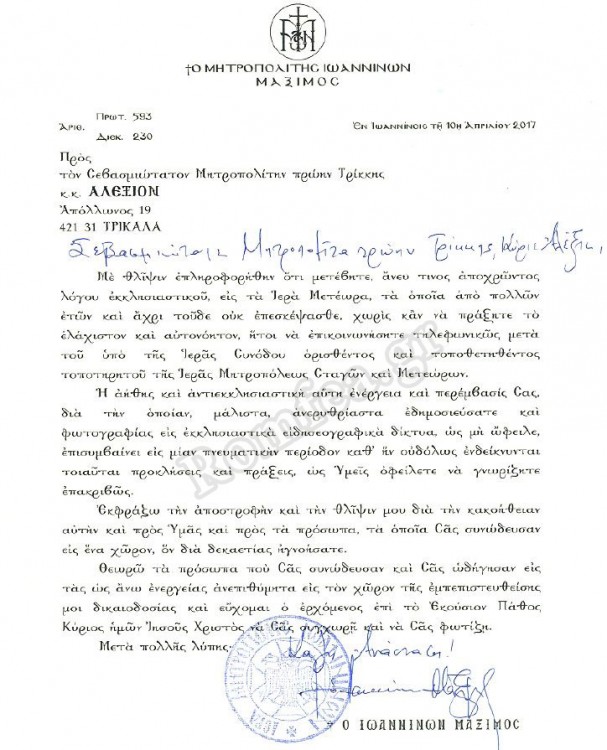 †Ο ΜΗΤΡΟΠΟΛΙΤΗΣ ΙΩΑΝΝΙΝΩΝ
ΜΑΞΙΜΟΣ
Ἀριθ. Πρωτ. 593
Διεκ. 230
Ἐν Ἰωαννίνοις τῇ 10ῃ Ἀπριλίου 2017
Πρὸς
τὸν Σεβασμιώτατον Μητροπολίτην πρώην Τρίκκης
κ.κ. ΑΛΕΞΙΟΝ
Ἀπόλλωνος 19
421 31 ΤΡΙΚΑΛΑ
Σεβασμιώτατε Μητροπολῖτα πρώην Τρίκκης, κύριε Ἀλέξιε,
Μὲ θλῖψιν ἐπληροφορήθην ὅτι μετέβητε, ἄνευ τινος ἀποχρῶντος
λόγου ἐκκλησιαστικοῦ, εἰς τὰ Ἱερὰ Μετέωρα, τὰ ὁποῖα ἀπὸ πολλῶν
ἐτῶν καὶ ἄχρι τοῦδε οὐκ ἐπεσκέψασθε, χωρὶς κἂν νὰ πράξητε τὸ
ἐλάχιστον καὶ αὐτονόητον, ἤτοι νὰ ἐπικοινωνήσητε τηλεφωνικῶς μετὰ
τοῦ ὑπὸ τῆς Ἱερᾶς Συνόδου ὁρισθέντος καὶ τοποθετηθέντος
τοποτηρητοῦ τῆς Ἱερᾶς Μητροπόλεως Σταγῶν καὶ Μετεώρων.
Ἡ ἀήθης καὶ ἀντιεκκλησιαστικὴ αὕτη ἐνέργεια καὶ περέμβασίς Σας,
διὰ τὴν ὁποίαν, μάλιστα, ἀνερυθρίαστα ἐδημοσιεύσατε καὶ
φωτογραφίας εἰς ἐκκλησιαστικὰ εἰδησεογραφικὰ δίκτυα, ὡς μὴ ὤφειλε,
ἐπισυμβαίνει εἰς μίαν πνευματικὴν περίοδον καθ' ἣν οὐδόλως ἐνδείκνυνται
τοιαῦται προκλήσεις καὶ πράξεις, ὡς Ὑμεῖς ὀφείλετε νὰ γνωρίζητε
ἐπακριβῶς.
Ἐκφράζω τὴν ἀποστροφὴν καὶ τὴν θλῖψιν μου διὰ τὴν κακοήθειαν
αὐτὴν καὶ πρὸς Ὑμᾶς καὶ πρὸς τὰ πρόσωπα, τὰ ὁποῖα Σᾶς συνώδευσαν
εἰς ἕνα χῶρον, ὃν διὰ δεκαετίας ἠγνοήσατε.
Θεωρῶ τὰ πρόσωπα ποὺ Σᾶς συνώδευσαν καὶ Σᾶς ὡδήγησαν εἰς
τὰς ὡς ἄνω ἐνεργείας ἀνεπιθύμητα εἰς τὸν χῶρον τῆς ἐμπεπιστευθείσης
μοι δικαιοδοσίας καὶ εὔχομαι ὁ ἐρχόμενος ἐπὶ τὸ Ἑκούσιον Πάθος
Κύριος ἡμῶν Ἰησοῦς Χριστὸς νὰ Σᾶς συγχωρῇ καὶ νὰ Σᾶς φωτίζῃ.
Μετὰ πολλῆς λύπης·
Καλὴ Ἀνάσταση!
Ο ΙΩΑΝΝΙΝΩΝ ΜΑΞΙΜΟΣ
Romfea.gr